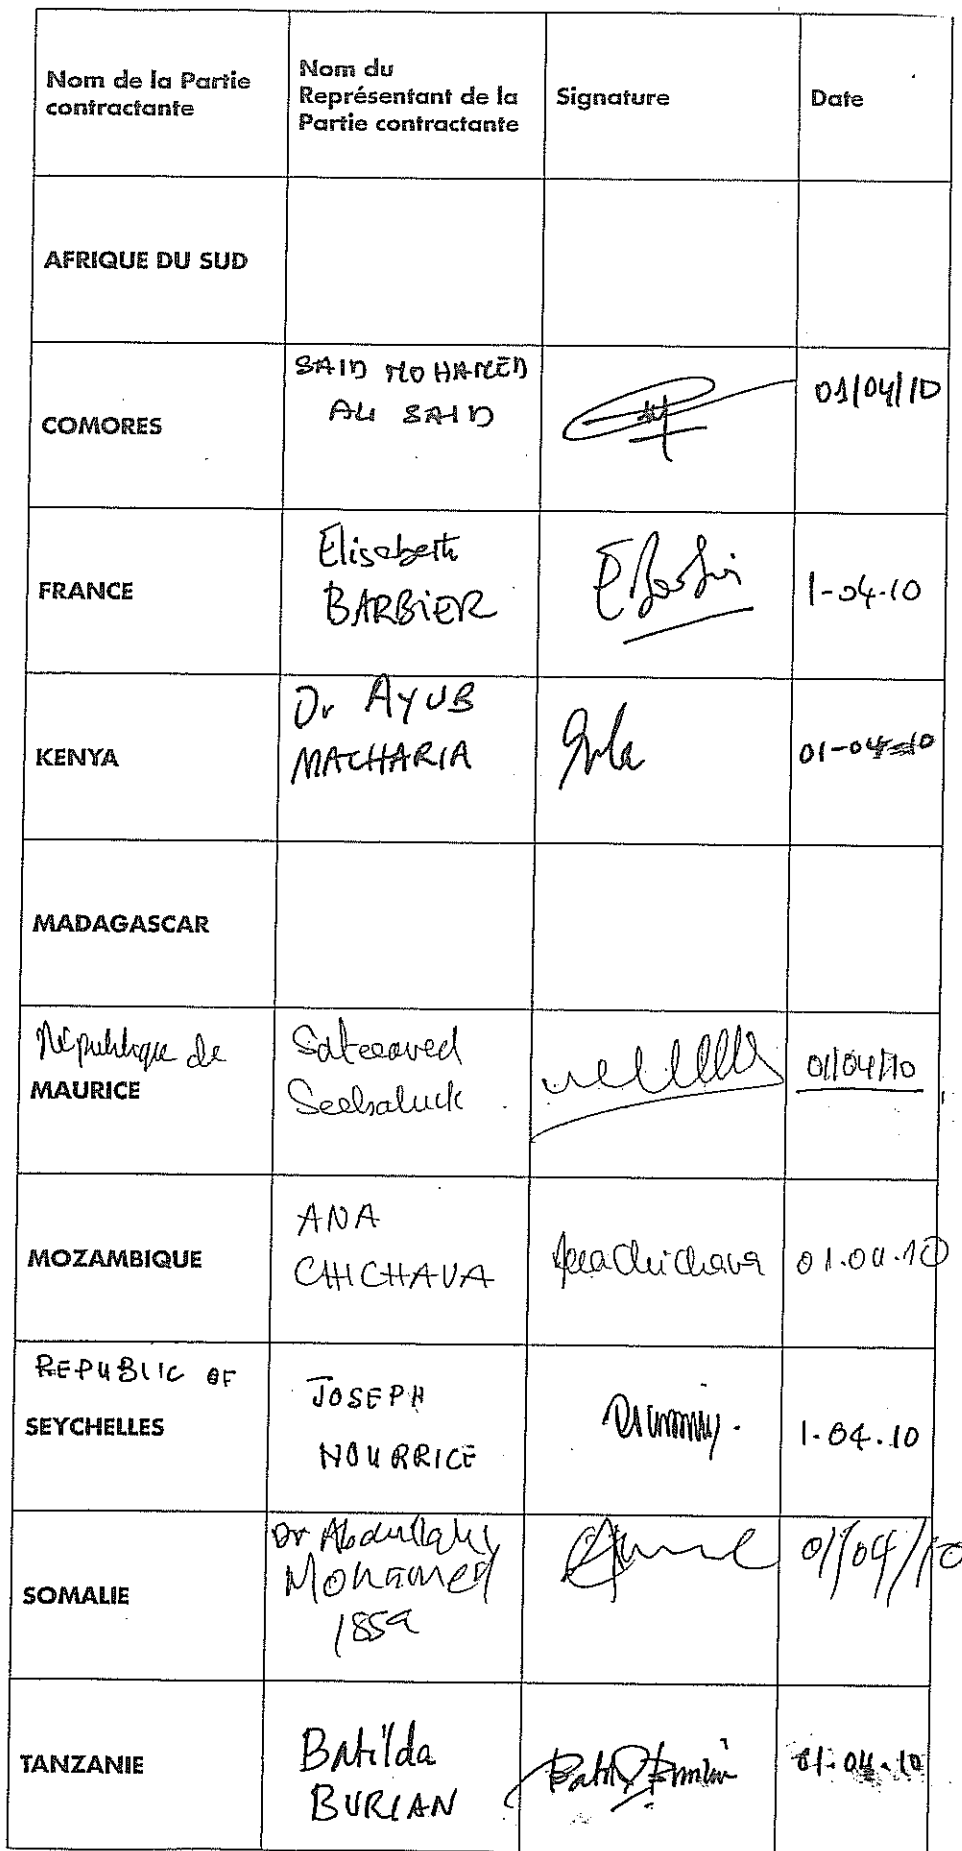 Nom de la Partie
contractante
Nom du
Représentant de la
Partie contractante
Signature
Date
AFRIQUE DU SUD
COMORES
SAID MOHAMED
ALI SAID
01/04/10
FRANCE
Elisabeth
BARBIER
EBarbier
1-04-10
KENYA
Dr AYUB
MACHARIA
01-04-10
MADAGASCAR
République de
MAURICE
Sateeaved
Seebaluck
01/04/10
MOZAMBIQUE
ANA
CHICHAVA
AnaChichava
01.04.10
REPUBLIC OF
SEYCHELLES
JOSEPH
NOURRICE
1.04.10
SOMALIE
Dr Abdullahi
Mohamed
Issa
01/04/10
TANZANIE
Batilda
BURIAN
01.04.10